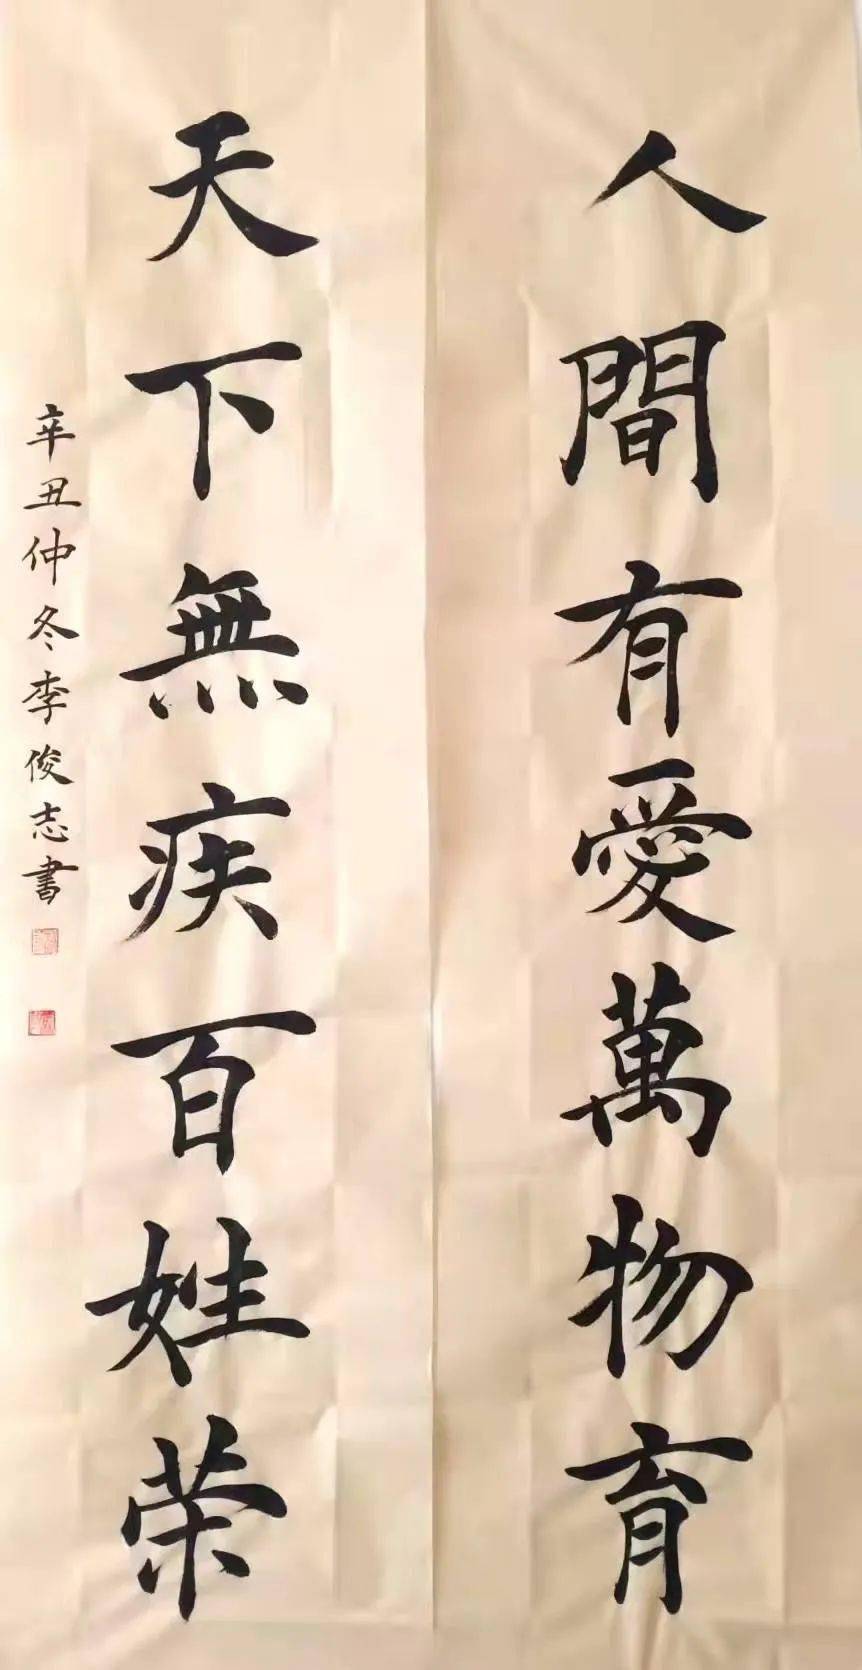 人間有愛萬物育
天下無疾百姓荣
辛丑仲冬李俊志書